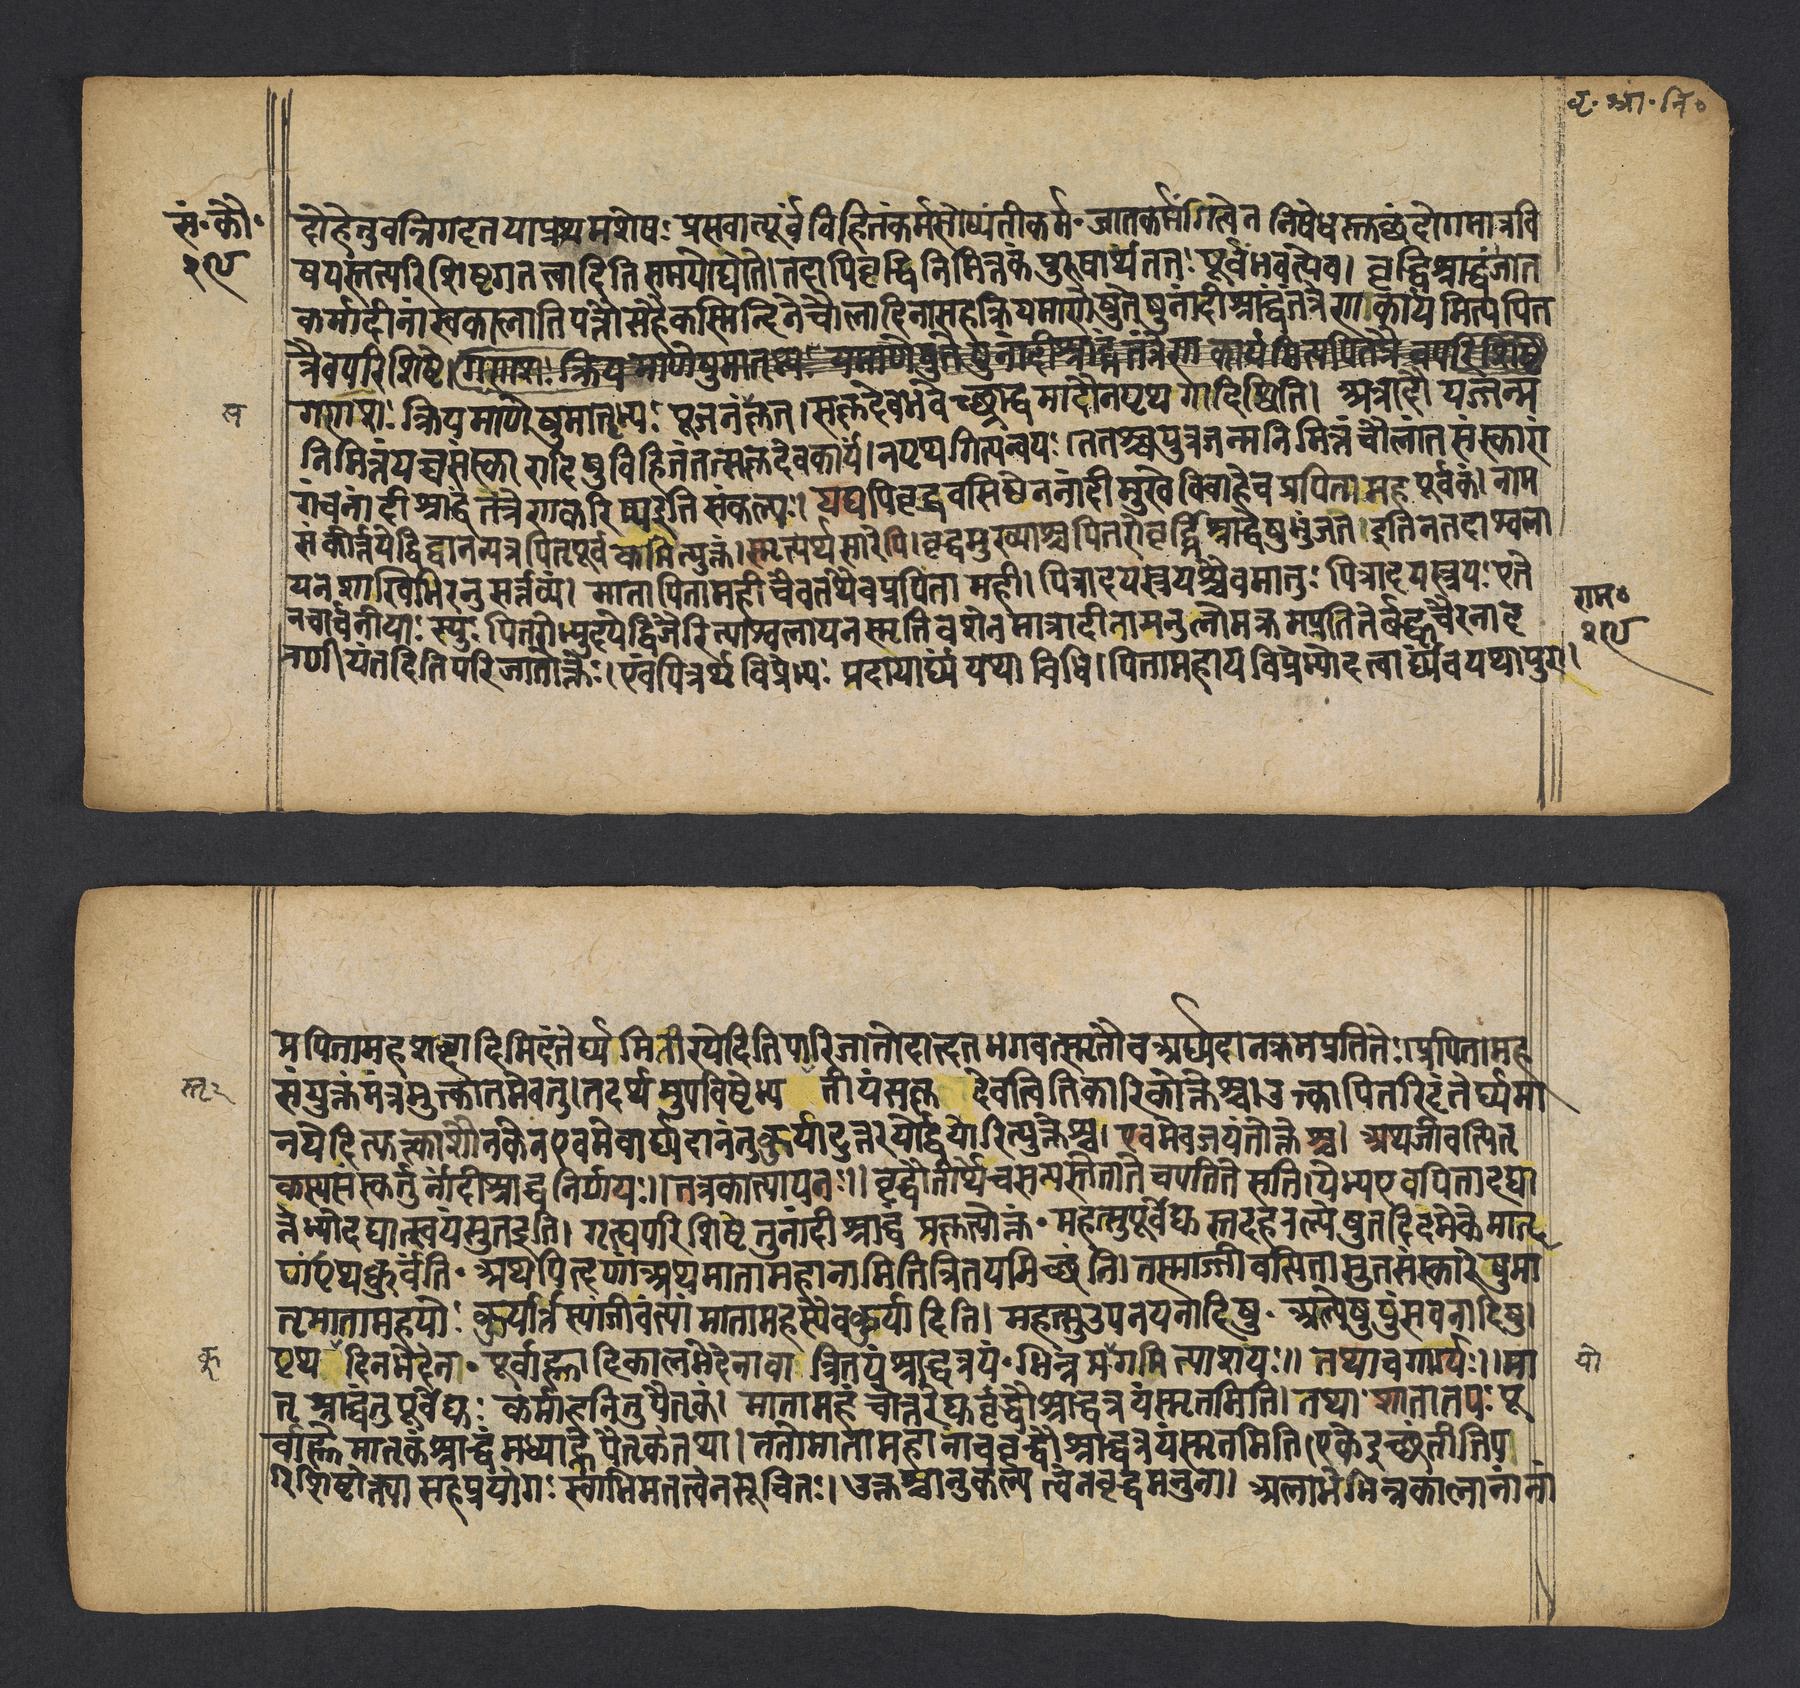 वृ. श्रा. नि०
सं. कौ.
१९
दोहेतुवन्निगदतयाप्रथमशेषः प्रसवात्पूर्वं विहितं कर्मसोष्यंतीकर्म. जातकर्मांगत्वेन निषेधस्तुछंदोगमात्रवि
षयस्तत्परिशिष्टगतत्वादिति समयोद्योते। तदापिवृद्धिनिमित्तकं पुरुषार्थं ततः पूर्वं भवत्येव। वृद्धिश्राद्धं जात
कर्मादीनां स्वकालातिपत्तौ सहैकस्मिन्दिने चौलादिनासहक्रियमाणेषुतेषु नांदीश्राद्धं तंत्रेण कार्यमित्यपि त
त्रैवपरिशिष्टे।
ख
गणशः क्रियमाणेषु मातृभ्यः पूजनं सकृत्। सकृदेवभवेच्छ्राद्धमादौ नपृथगादिष्विति। अत्रादौ यज्जन्म
निमित्तं यच्च संस्कारादिषु विहितं तत्सकृदेवकार्यं। नपृथगित्यन्वयः। ततश्च पुत्रजन्मनिमित्तं चौलांतसंस्कारां
गंच नांदीश्राद्धं तंत्रेण करिष्यइति संकल्पः। यद्यपि वृद्धवसिष्ठेन नांदीमुखे विवाहेच प्रपितामहपूर्वकं। नाम
संकीर्त्तयेद्विद्वानन्यत्र पितृपूर्वकमित्युक्तं। स्मृत्यर्थसारेपि। वृद्धमुख्याश्च पितरो वृद्धिश्राद्धेषु भुंजते। इति नतदाश्वला
यनशाखिभिरनुसर्त्तव्यं। मातापितामही चैव तथैव प्रपितामही। पित्रादयस्त्रयश्चैव मातुः पित्रादयस्त्रयः एते
नवार्चनीयाः स्युः पितरोभ्युदये द्विजैरित्याश्वलायनस्मृतिवशेन मात्रादीनामनुलोमक्रमप्रतीतेर्बह्वृचैरनादृ
राम०
१९
तदिति पारिजातोक्तेः। एवं पित्रर्थविप्रेभ्यः प्रदायार्घ्यं यथाविधि। पितामहाय विप्रेभ्यो दत्वार्घ्यंच यथापुरा।
प्रपितामहशब्दादिमिदंतेर्घ्यमितीरयेदिति पारिजातोदाहृतभगवत्स्मृतौच अर्घ्यदानक्रमप्रतीतेः। प्रपितामह
संयुक्तं मंत्रमुक्त्वातमेवतु। तदर्थमुपविष्टेभ्य तीयं सकृ देवत्विति कारिकोक्तेश्च। उक्त्वा पितरिदंतेर्घ्यमा
नयेदित्युक्त्वा शौनकेन एवमेवार्घ्यदानंतु कुर्यादुत्तरयोर्द्वयोरित्युक्तेश्च। एवमेव जयंतोक्तेश्च। अथजीवत्पितृ
कस्यसंस्कर्तुर्नांदीश्राद्धनिर्णयः॥ तत्रकात्यायनः॥ वृद्धौतीर्थेच संन्यस्ते ताते च पतिते सति। येभ्यएव पिता दद्या
त्तेभ्योदद्यात्स्वयं सुत इति। गृह्यपरिशिष्टे तु नांदीश्राद्धं प्रकृत्योक्तं. महत्सुपूर्वेद्युस्तदहरल्पेषु तदिदमेके मातृ
णांपृथक्कुर्वंति. अथपितॄणां अथमातामहानामितित्रितयमिच्छंति। तस्माज्जीवत्पिता सुतसंस्कारेषु मा
तृमातामहयोः कुर्यात्तस्यां जीवंत्यां मातामहस्यैव कुर्यादिति। महत्सु उपनयनादिषु. अल्पेषु पुंसवनादिषु।
पृथ दिनभेदेन. पूर्वाह्णादिकालभेदेनवा त्रितयं श्राद्धत्रयं. भिन्नप्रयोगमित्याशयः॥ तथाचगार्ग्यः॥ मा
क्
यो
तृश्राद्धंतु पूर्वेद्युः कर्माहनितु पैतृकं। मातामहं चोत्तरेद्युर्वृद्धौश्राद्धत्रयं स्मृतमिति। तथा शातातपः पू
र्वाह्णे मातृकंश्राद्धं मध्याह्ने पैतृकंतथा। ततोमातामहानांच वृद्धौ श्राद्धत्रयं स्मृतमिति। एके इच्छंतीतिप
रिशिष्टोक्त्या सहप्रयोगः स्वाभिमतत्वेन सूचितः। उक्तश्चानुकल्पत्वेन वृद्धमनुना। अलाभे भिन्नकालानांनां